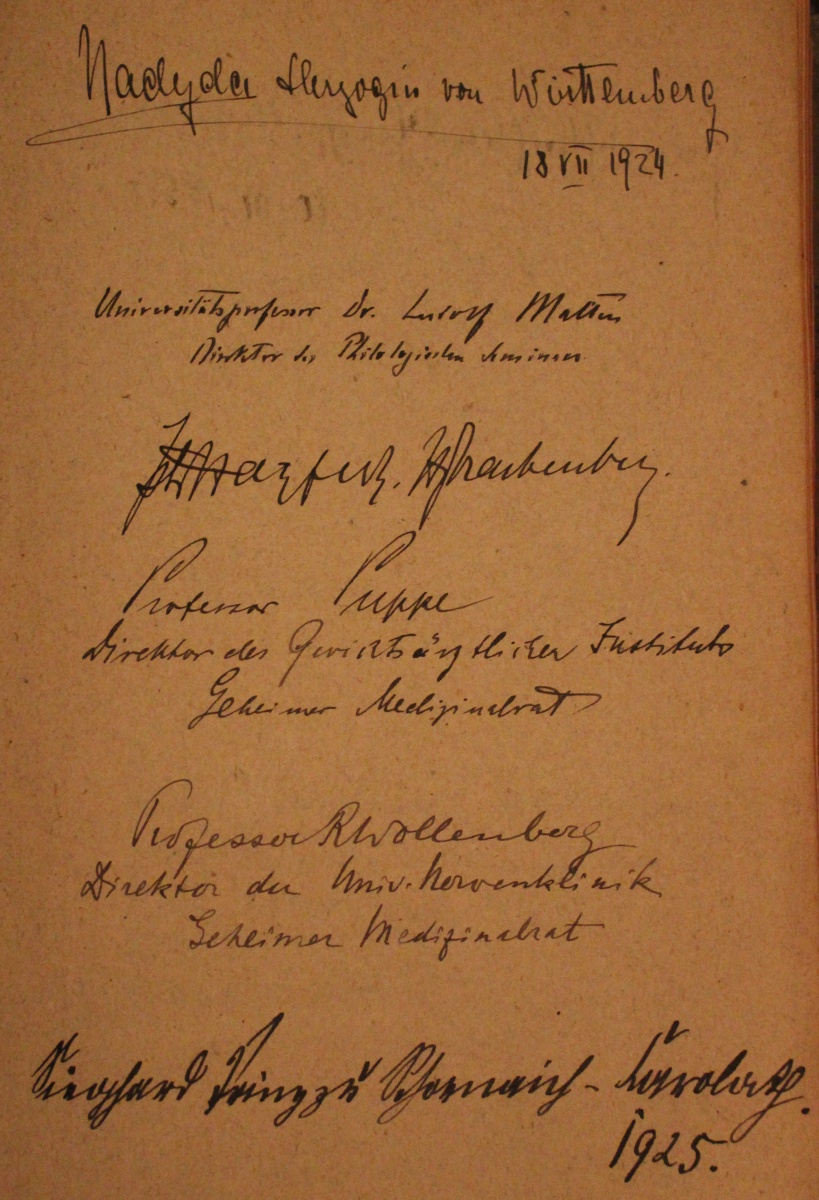 Nadejda Herzogin von Württemberg
18 VII 1924.
Universitätsprofessor Dr. Ludolf Malten
Direktor des Philologischen Seminars.
Professor Puppe
Direktor des Gerichtsärztlichen Instituts
Geheimer Medizinalrat
Professor R Wollenberg
Direktor der Univ. Nervenklinik
Geheimer Medizinalrat
Sieghard Prinz zu Schoenaich-Carolath.
1925.